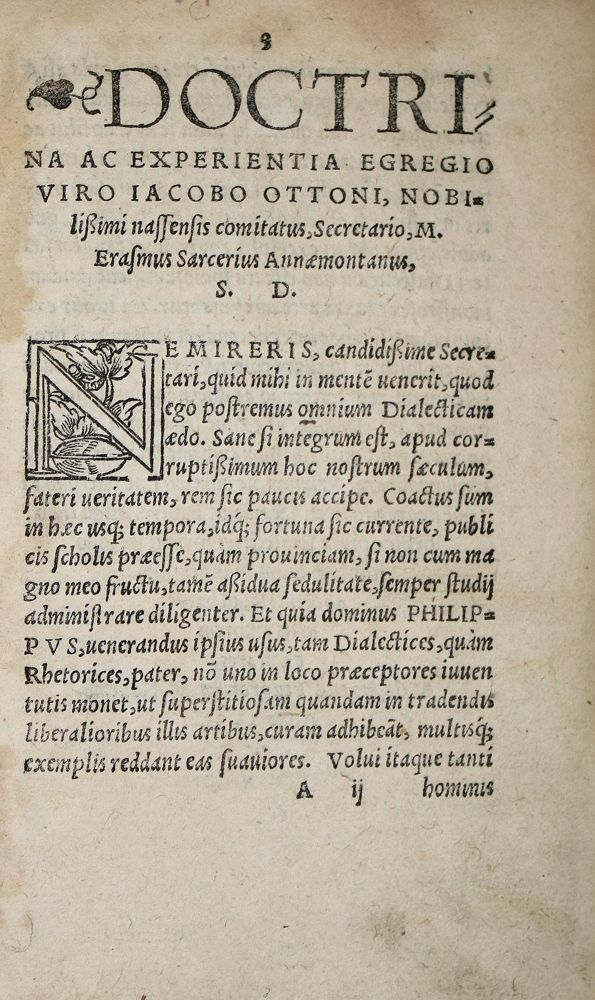 3
DOCTRI⸗
NA AC EXPERIENTIA EGREGIO
VIRO IACOBO OTTONI, NOBI⸗
lißimi nassensis comitatus, Secretario, M.
Erasmus Sarcerius Annæmontanus,
S. D.
NE MIRERIS, candidißime Secre⸗
tari, quid mihi in mentē uenerit, quod
ego postremus omnium Dialecticam
ædo. Sane si integrum est, apud cor⸗
ruptißimum hoc nostrum sæculum,
fateri ueritatem, rem sic paucis accipe. Coactus sum
in hæc usq; tempora, idq́; fortuna sic currente, publi
cis scholis præesse, quàm prouinciam, si non cum ma
gno meo fructu, tamē aßidua sedulitate, semper studij
administrare diligenter. Et quia dominus PHILIP⸗
PVS, uenerandus ipsius usus, tam Dialectices, quàm
Rhetorices, pater, nō uno in loco præceptores iuuen
tutis monet, ut superstitiosam quandam in tradendis
liberalioribus illis artibus, curam adhibeāt, multisq́;
exemplis reddant eas suauiores. Volui itaque tanti
A ij hominis